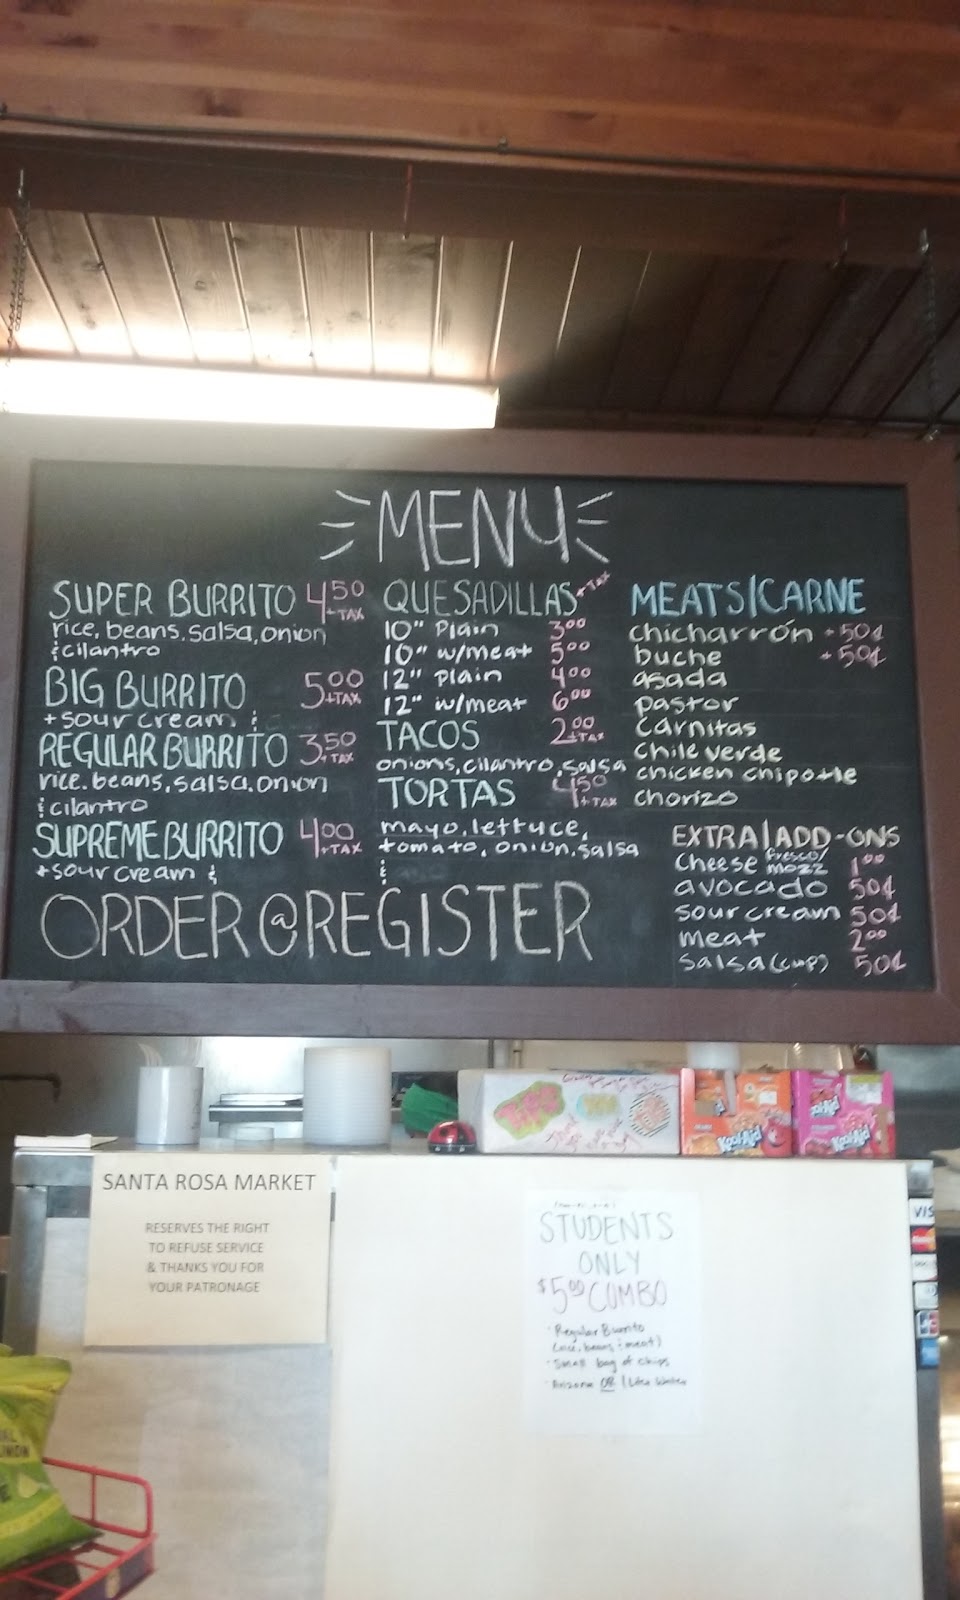 MENU
SUPER BURRITO 4.50 +TAX
rice, beans, salsa, onion
& cilantro
BIG BURRITO 5.00 +TAX
+ sour cream &
REGULAR BURRITO 3.50 +TAX
rice, beans, salsa, onion
& cilantro
SUPREME BURRITO 4.00 +TAX
+ sour cream &
QUESADILLAS +TAX
10" Plain 3.00
10" w/meat 5.00
12" plain 4.00
12" w/meat 6.00
TACOS 2.00 +TAX
onions, cilantro, salsa
TORTAS 4.50 +TAX
mayo, lettuce,
tomato, onion, salsa
&
MEATS/CARNE
chicharrón +50¢
buche +50¢
asada
pastor
carnitas
chile verde
chicken chipotle
chorizo
EXTRA/ADD-ONS
cheese fresco/mozz 1.00
avocado 50¢
sour cream 50¢
meat 2.00
salsa (cup) 50¢
ORDER @ REGISTER
Kool-Aid
Kool-Aid
SANTA ROSA MARKET
RESERVES THE RIGHT
TO REFUSE SERVICE
& THANKS YOU FOR
YOUR PATRONAGE
STUDENTS
ONLY
$5.00 COMBO
· Regular Burrito
(rice, beans & meat)
· Small bag of chips
· Arizona OR 1 Liter Water
VIS